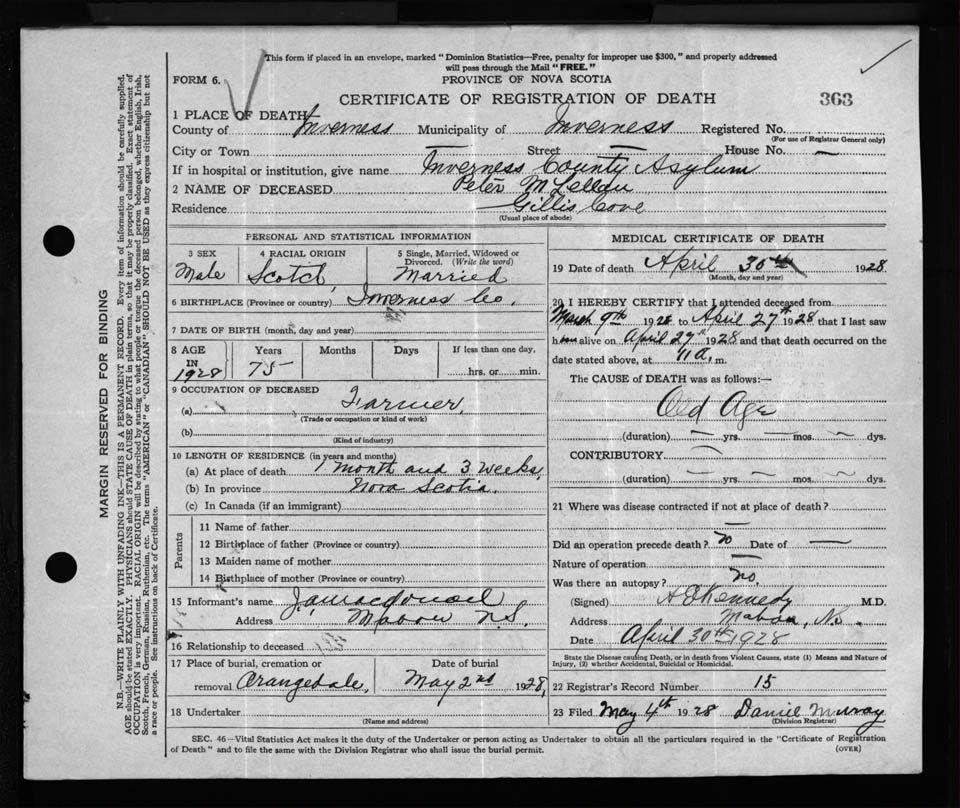 This form if placed in an envelope, marked "Dominion Statistics—Free, penalty for improper use $300," and properly addressed
will pass through the Mail "FREE."
FORM 6.
PROVINCE OF NOVA SCOTIA
CERTIFICATE OF REGISTRATION OF DEATH
363
1 PLACE OF DEATH
County of Inverness Municipality of Inverness Registered No.
(For use of Registrar General only)
City or Town — Street — House No. —
If in hospital or institution, give name Inverness County Asylum
2 NAME OF DECEASED Peter McLellan
Residence Gillis Cove
(Usual place of abode)
PERSONAL AND STATISTICAL INFORMATION
3 SEX Male
4 RACIAL ORIGIN Scotch
5 Single, Married, Widowed or Divorced. (Write the word) Married
6 BIRTHPLACE (Province or country) Inverness Co.
7 DATE OF BIRTH (month, day and year)
8 AGE IN 1928
Years 75
Months
Days
If less than one day,
hrs. or min.
9 OCCUPATION OF DECEASED
(a) Farmer
(Trade or occupation or kind of work)
(b)
(Kind of industry)
10 LENGTH OF RESIDENCE (in years and months)
(a) At place of death 1 month and 3 weeks,
(b) In province Nova Scotia.
(c) In Canada (if an immigrant)
Parents
11 Name of father
12 Birthplace of father (Province or country)
13 Maiden name of mother
14 Birthplace of mother (Province or country)
15 Informant's name
Address Mabou N.S.
16 Relationship to deceased
17 Place of burial, cremation or
removal Orangedale,
Date of burial
May 2nd 1928,
18 Undertaker
(Name and address)
MEDICAL CERTIFICATE OF DEATH
19 Date of death April 30th 1928
(Month, day and year)
20 I HEREBY CERTIFY that I attended deceased from
March 9th 1928 to April 27th 1928 that I last saw
him alive on April 27th 1928 and that death occurred on the
date stated above, at 11 a. m.
The CAUSE of DEATH was as follows:—
Old Age
(duration) — yrs. — mos. — dys.
CONTRIBUTORY
(duration) — yrs. — mos. — dys.
21 Where was disease contracted if not at place of death?
—
Did an operation precede death? no Date of —
Nature of operation —
Was there an autopsy? no.
(Signed) Kennedy M.D.
Address Mabou, N.S.
Date April 30th 1928
State the Disease causing Death, or in death from Violent Causes, state (1) Means and Nature of
Injury, (2) whether Accidental, Suicidal or Homicidal.
22 Registrar's Record Number 15
23 Filed May 4th 1928 Daniel Murray
(Division Registrar)
SEC. 46—Vital Statistics Act makes it the duty of the Undertaker or person acting as Undertaker to obtain all the particulars required in the "Certificate of Registration
of Death" and to file the same with the Division Registrar who shall issue the burial permit.
(OVER)
MARGIN RESERVED FOR BINDING
N.B.—WRITE PLAINLY WITH UNFADING INK—THIS IS A PERMANENT RECORD. Every item of information should be carefully supplied.
AGE should be stated EXACTLY. PHYSICIANS should STATE CAUSE OF DEATH in plain terms, so that it may be properly classified. Exact statement of
OCCUPATION is very important. RACIAL ORIGIN will be described by stating to what people or tongue the deceased person belonged, whether English, Irish,
Scotch, French, German, Russian, Ruthenian, etc. The terms "AMERICAN" or "CANADIAN" SHOULD NOT BE USED as they express citizenship but not
a race or people. See instructions on back of Certificate.